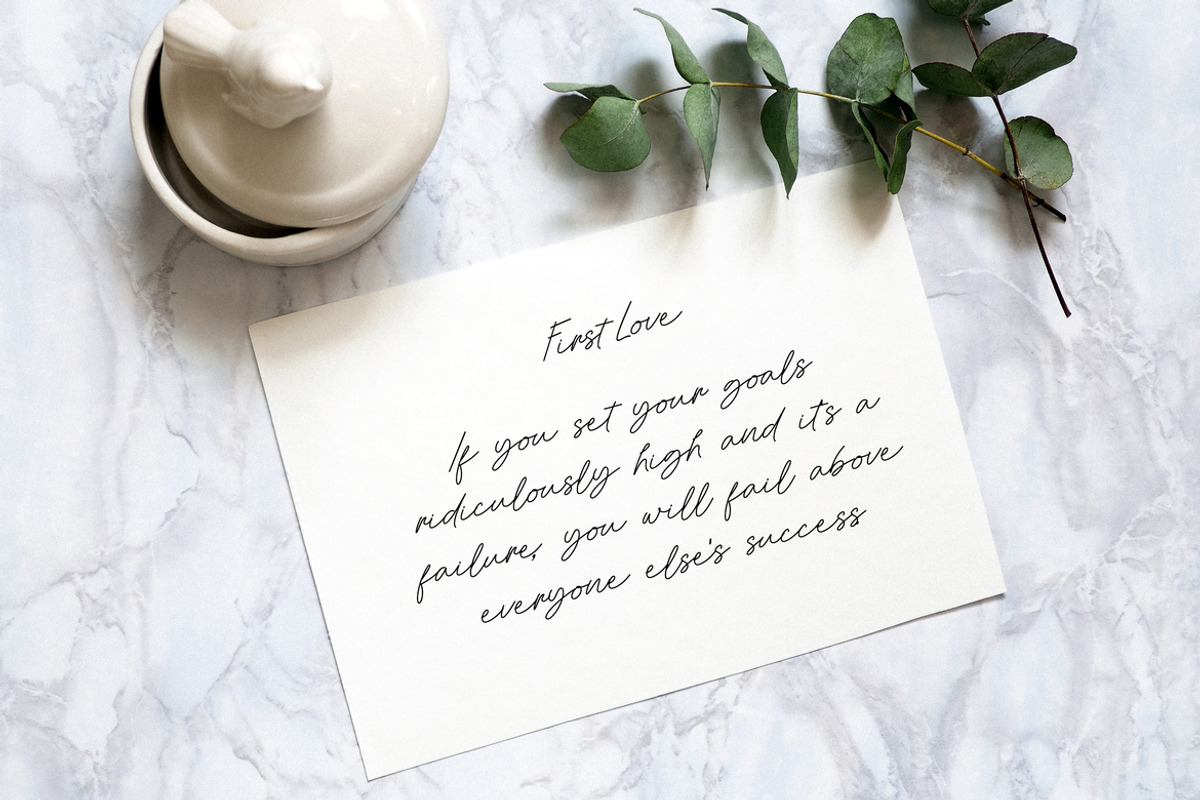 First Love
If you set your goals
ridiculously high and it's a
failure, you will fail above
everyone else's success